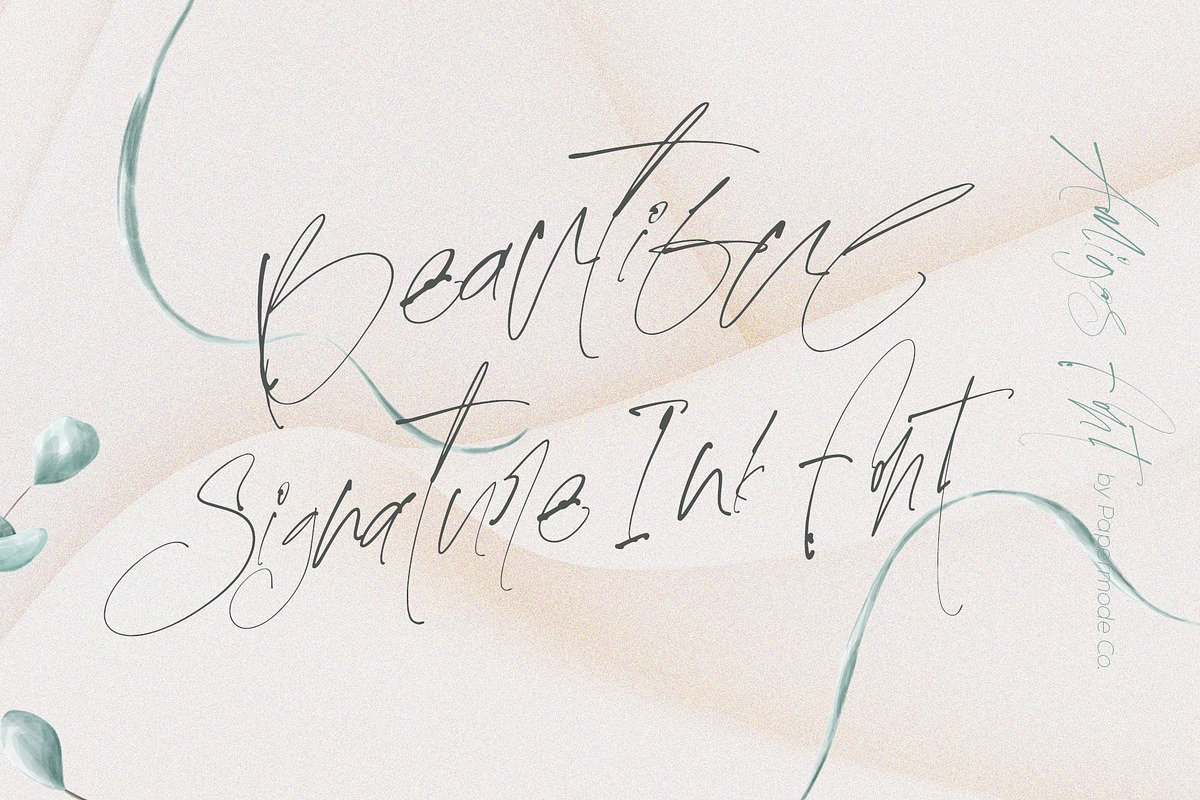 Beautiful
Signature Ink Font
Font
by Papermode Co.